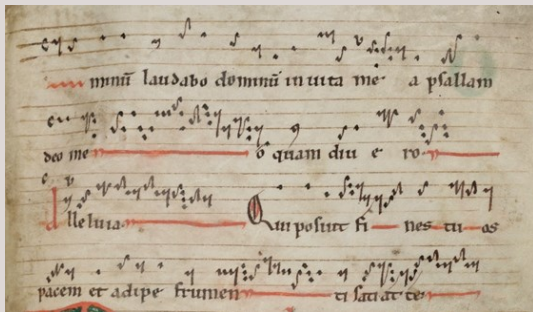 minū laudabo dominū in uita me a psallam
deo me o quam diu e ro
lleluia Qui posuit fi nes tu os
pacem et adipe frumen ti satiat te